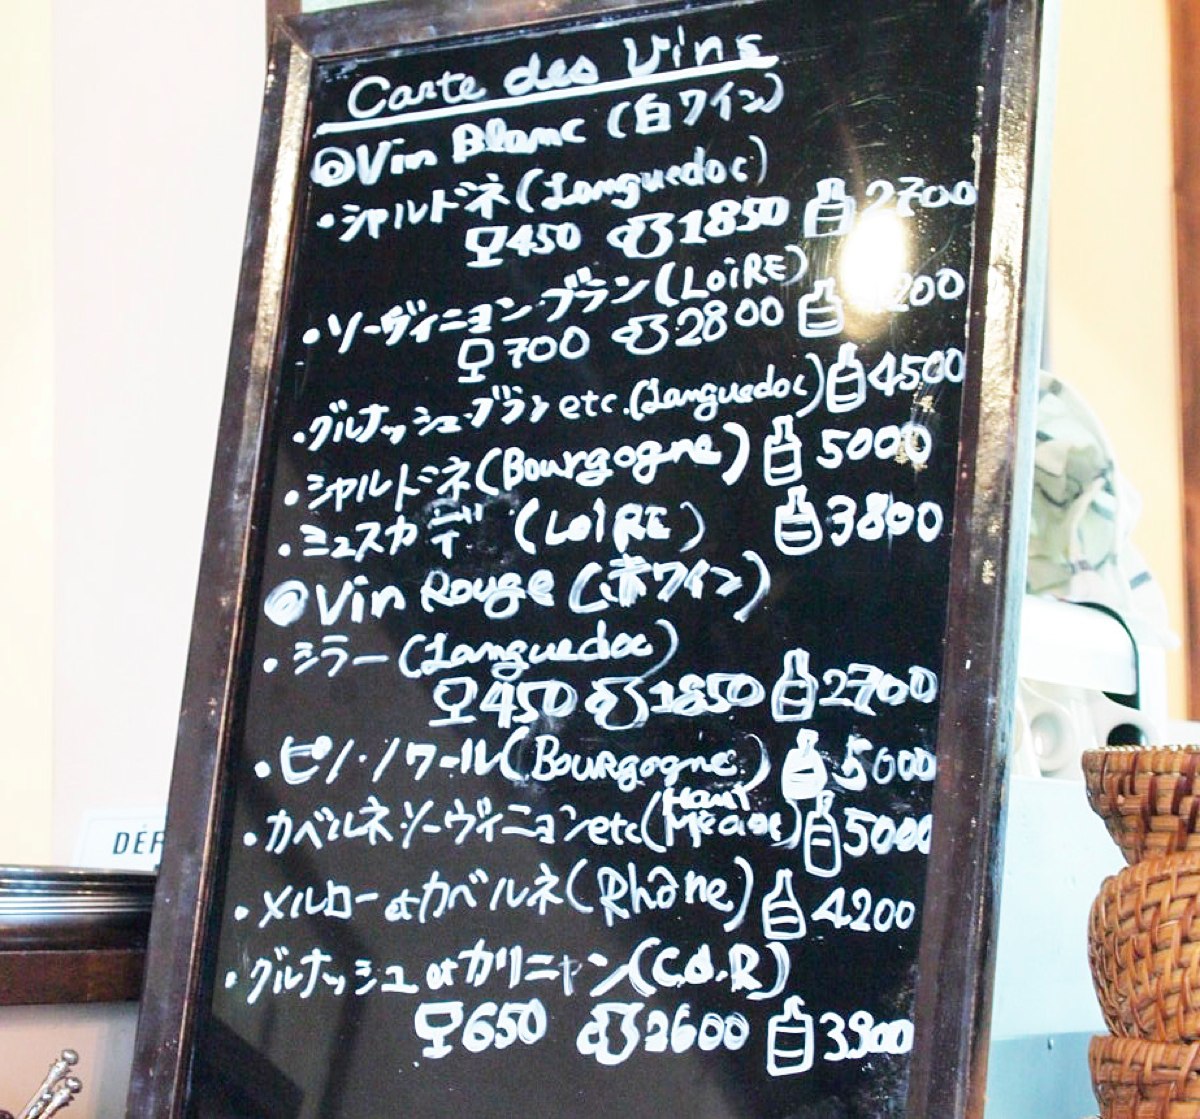 Carte des Vins
◎Vin Blanc (白ワイン)
・シャルドネ(Languedoc)
450 1850 2700
・ソーヴィニヨン・ブラン(LOIRE)
700 2800 200
・グルナッシュ・ブラン etc.(Languedoc) 4500
・シャルドネ(Bourgogne) 5000
・ミュスカデ (LOIRE) 3800
◎Vin Rouge (赤ワイン)
・シラー(Languedoc)
450 1850 2700
・ピノ・ノワール(Bourgogne) 5000
・カベルネ・ソーヴィニヨン etc(Haut Médoc) 5000
・メルロー et カベルネ(Rhône) 4200
・グルナッシュ et カリニャン(C.d.R)
650 2600 3900
DÉF